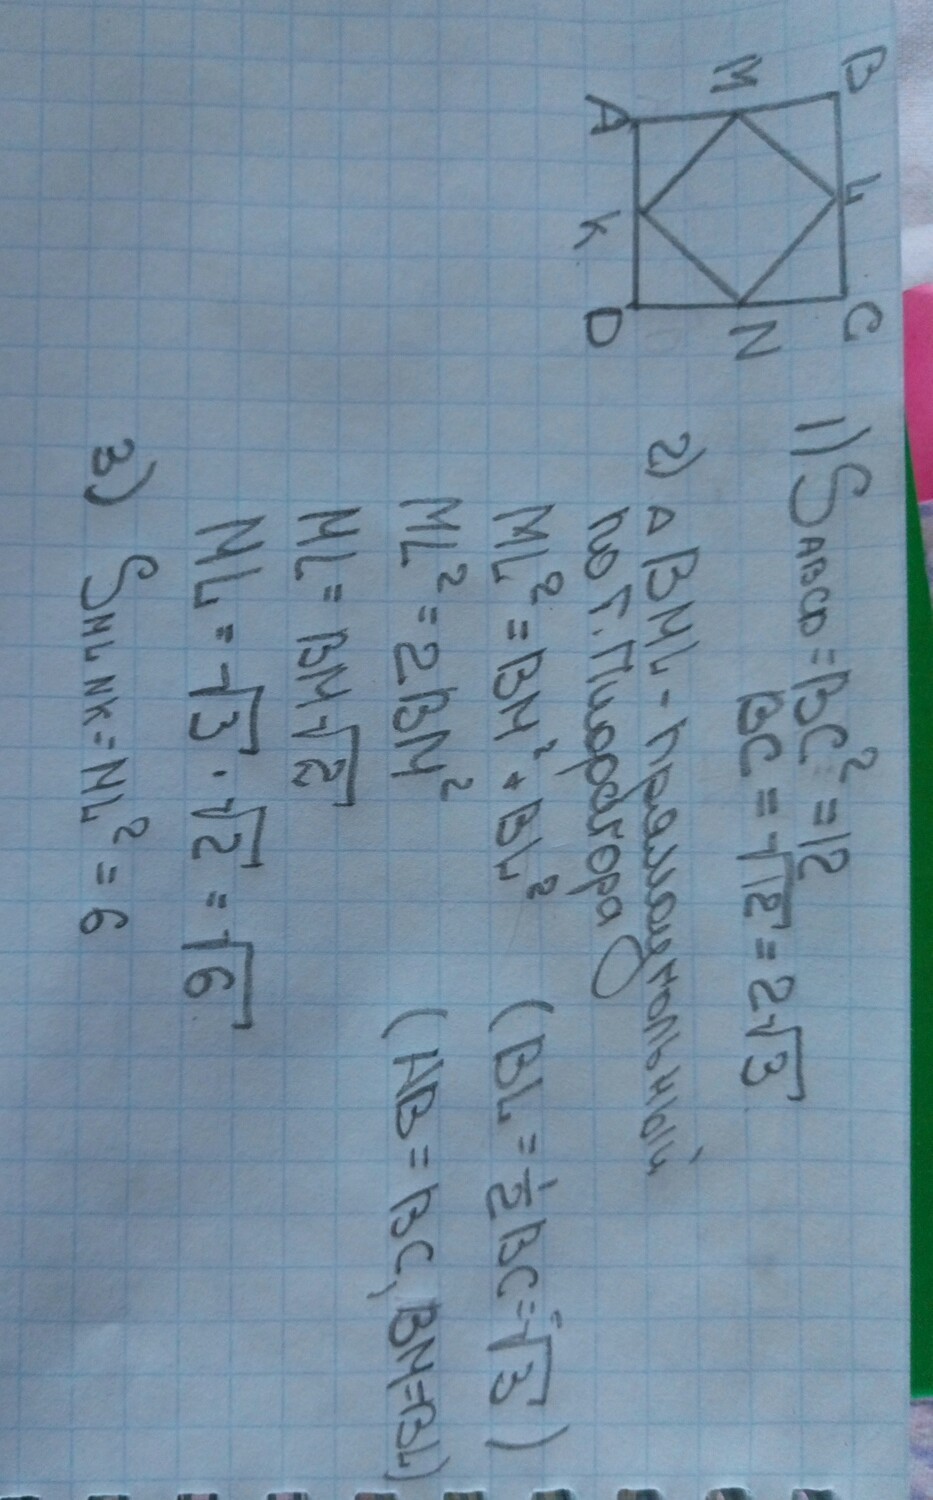 B L C
M N
A K D
1) SABCD = BC² = 12
BC = √12 = 2√3
2) △ BML - прямоугольный
по т. Пифагора
ML² = BM² + BL² (BL = 1/2 BC = √3)
ML² = 2BM² (AB = BC, BM = BL)
ML = BM√2
ML = √3 · √2 = √6
3) SMLNK = ML² = 6